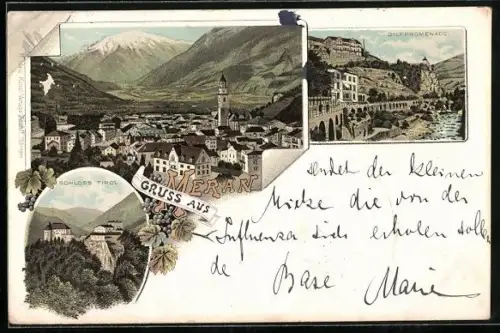 GILFPROMENADE
SCHLOSS TIROL
GRUSS AUS
MERAN
sendet der kleinen
Mieke die von der
Influenza sich erholen sollen-
de Base Marie